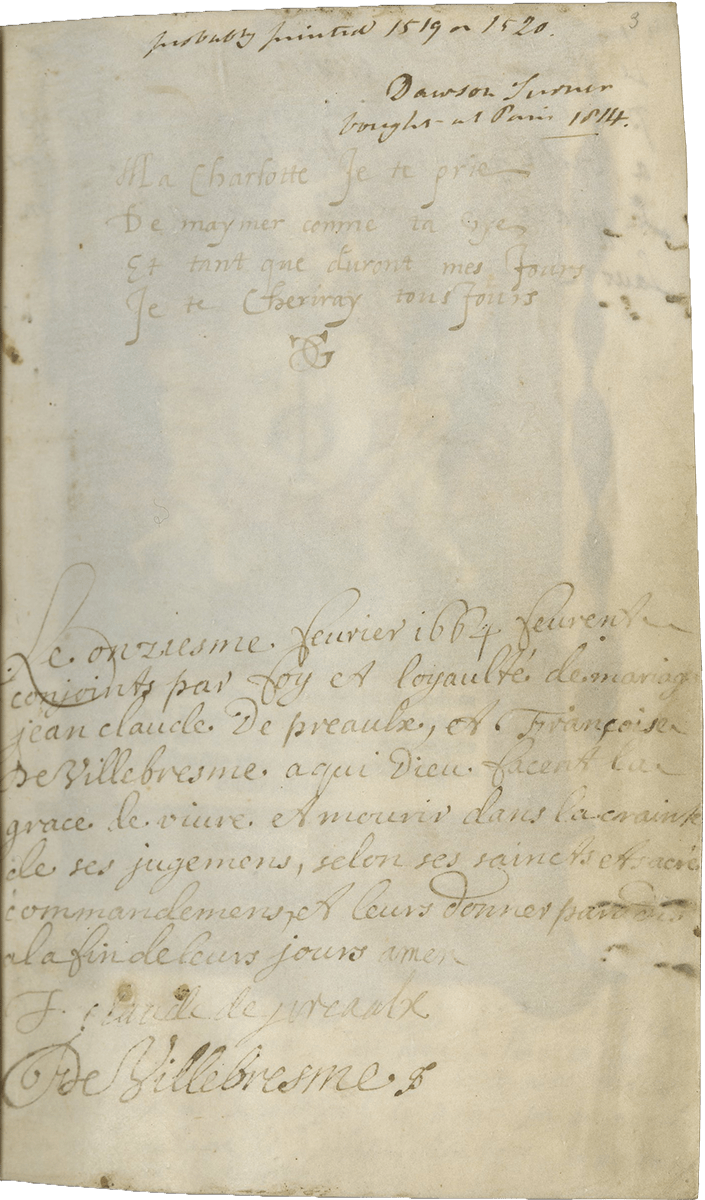 3
probably printed 1519 or 1520.
Dawson Turner
bought at Paris 1814.
Ma Charlotte Je te prie
De maymer comme ta vye
Et tant que duront mes Jours
Je te Cheriray tousJours
Le onziesme fevrier 1664 feurent
conjoints par foy et loyaulté de mariag
jean claude De preaulx, et Françoise
De Villebresme aqui Dieu facent la
grace de viure et mourir dans la crainte
de ses jugemens, selon ses saincts et sacré
commandemens, et leurs donner paradis
a la fin de leurs jours amen
J. claude de preaulx
De Villebresme